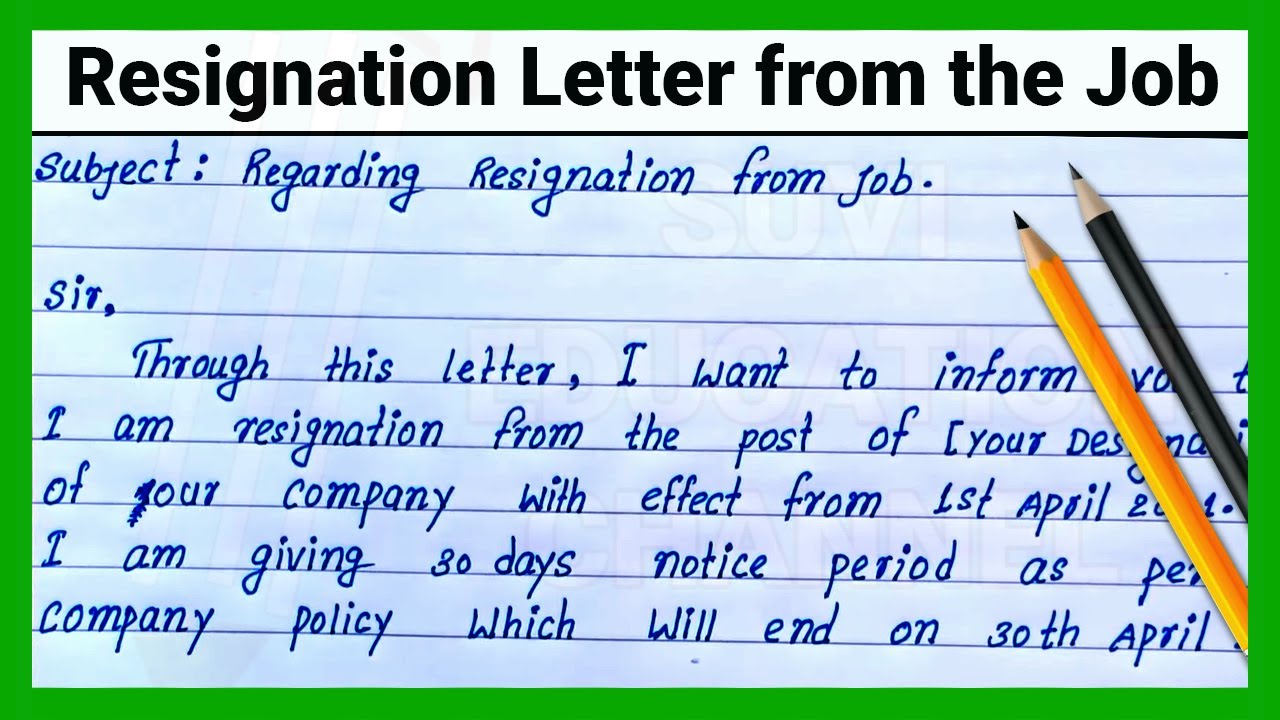 Resignation Letter from the Job
Subject: Regarding Resignation from Job.
SUVI
Sir,
EDUCATION
Through this letter, I want to inform
I am resignation from the post of [Your
of your company with effect from 1st April
CHANNEL
I am giving 30 days notice period as per
company policy which will end on 30th April